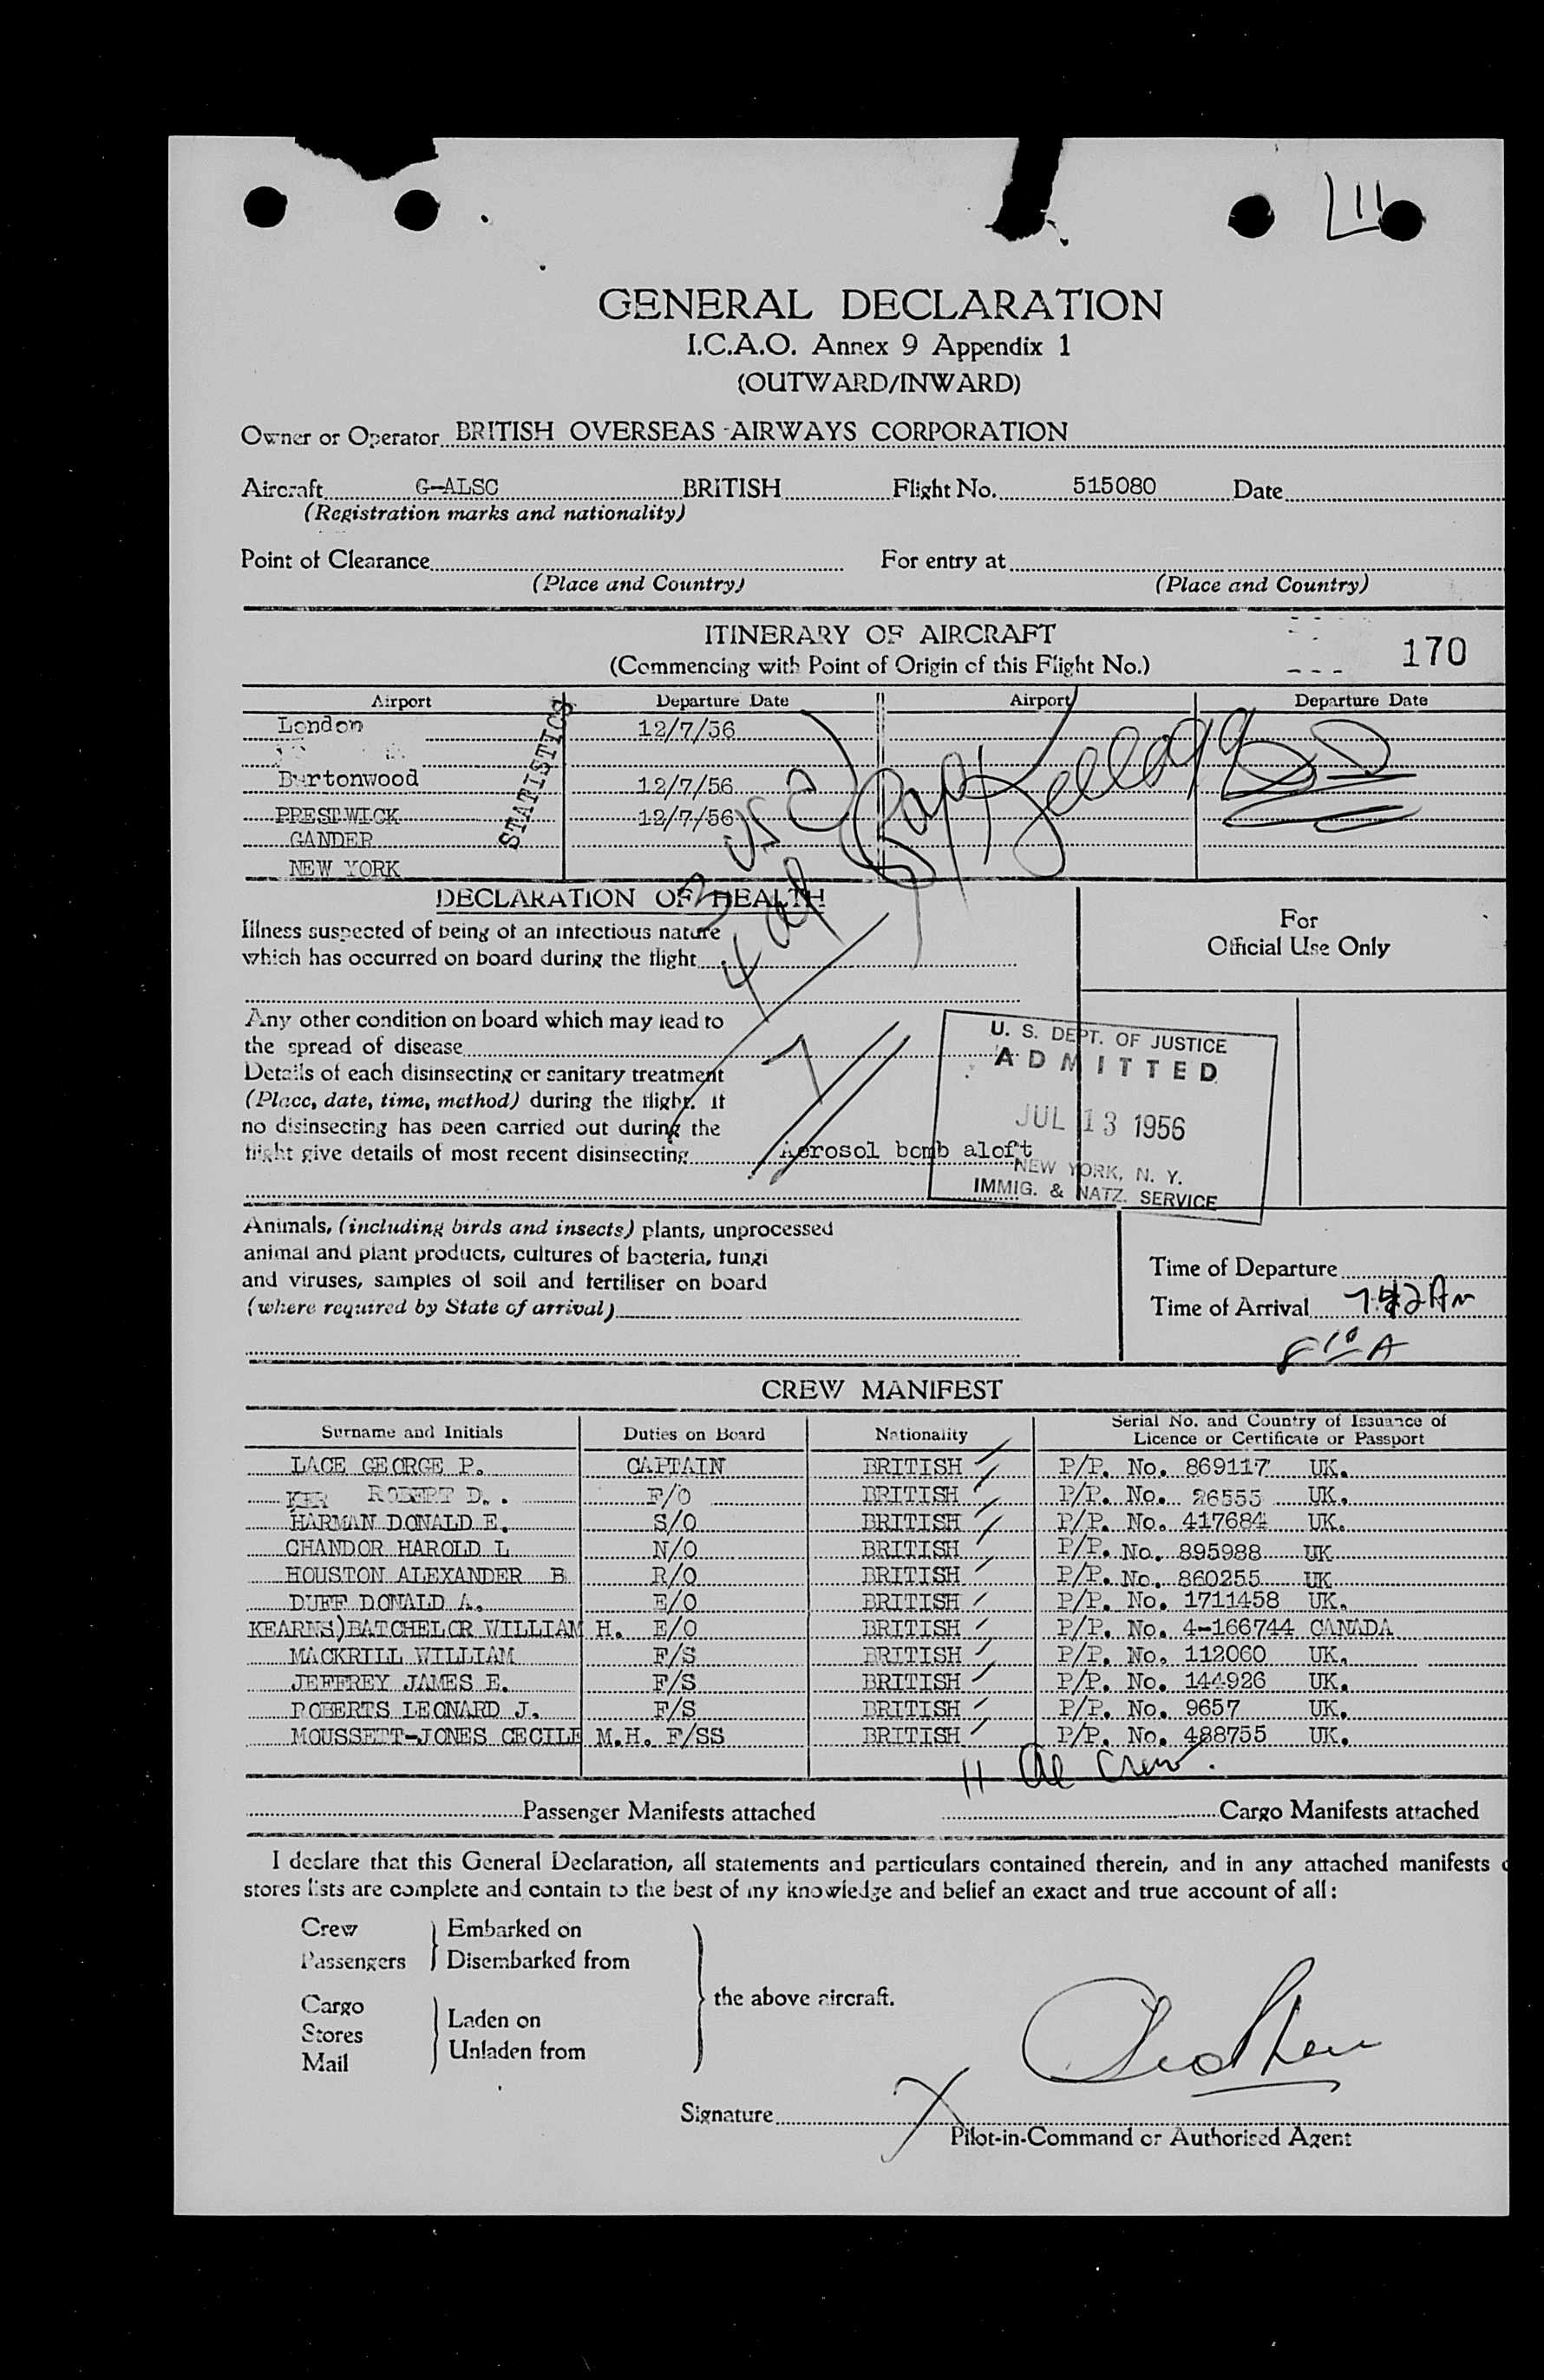 L11
GENERAL DECLARATION
I.C.A.O. Annex 9 Appendix 1
(OUTWARD/INWARD)
Owner or Operator BRITISH OVERSEAS AIRWAYS CORPORATION
Aircraft G-ALSC BRITISH Flight No. 515080 Date
(Registration marks and nationality)
Point of Clearance For entry at
(Place and Country) (Place and Country)
ITINERARY OF AIRCRAFT
(Commencing with Point of Origin of this Flight No.) 170
Airport Departure Date Airport Departure Date
London 12/7/56
STATISTICS
Burtonwood 12/7/56
PRESTWICK 12/7/56
GANDER
NEW YORK
3 USC
4 al
7
DECLARATION OF HEALTH
Illness suspected of being of an infectious nature
which has occurred on board during the flight
For
Official Use Only
Any other condition on board which may lead to
the spread of disease
Details of each disinsecting or sanitary treatment
(Place, date, time, method) during the flight. If
no disinsecting has been carried out during the
flight give details of most recent disinsecting Aerosol bomb aloft
U. S. DEPT. OF JUSTICE
ADMITTED
JUL 13 1956
NEW YORK, N. Y.
IMMIG. & NATZ. SERVICE
Animals, (including birds and insects) plants, unprocessed
animal and plant products, cultures of bacteria, fungi
and viruses, samples of soil and fertiliser on board
(where required by State of arrival)
Time of Departure
Time of Arrival 7:42 Am
8 10 A
CREW MANIFEST
Surname and Initials Duties on Board Nationality Serial No. and Country of Issuance of Licence or Certificate or Passport
LACE GEORGE P. CAPTAIN BRITISH P/P. No. 869117 UK.
KER ROBERT D. F/O BRITISH P/P. No. 26555 UK.
HARMAN DONALD E. S/O BRITISH P/P. No. 417684 UK.
CHANDOR HAROLD L N/O BRITISH P/P. No. 895988 UK
HOUSTON ALEXANDER B R/O BRITISH P/P. No. 860255 UK
DUFF DONALD A. E/O BRITISH P/P. No. 1711458 UK.
KEARNS)BATCHELOR WILLIAM H. E/O BRITISH P/P. No. 4-166744 CANADA
MACKRILL WILLIAM F/S BRITISH P/P. No. 112060 UK.
JEFFREY JAMES E. F/S BRITISH P/P. No. 144926 UK.
ROBERTS LEONARD J. F/S BRITISH P/P. No. 9657 UK.
MOUSSETT-JONES CECILE M.H. F/SS BRITISH P/P. No. 488755 UK.
11 al Crew.
Passenger Manifests attached Cargo Manifests attached
I declare that this General Declaration, all statements and particulars contained therein, and in any attached manifests
stores lists are complete and contain to the best of my knowledge and belief an exact and true account of all:
Crew Embarked on
Passengers Disembarked from
the above aircraft.
Cargo Laden on
Stores
Mail Unladen from
Signature X
Pilot-in-Command or Authorised Agent